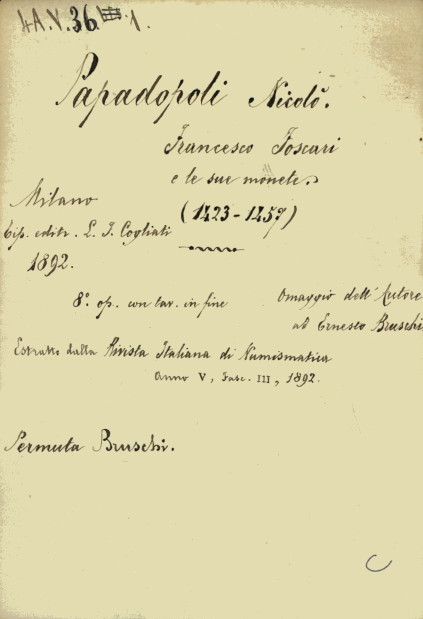 4A.V.36.1.
Papadopoli Nicolò.
Francesco Foscari
e le sue monete.
(1423-1457)
Milano
tip. editr. L. F. Cogliati
1892.
8.° op. con tav. in fine
Omaggio dell'Autore
ad Ernesto Bruschi
Estratto dalla Rivista Italiana di Numismatica
Anno V, Fasc. III, 1892.
Permuta Bruschi.
C